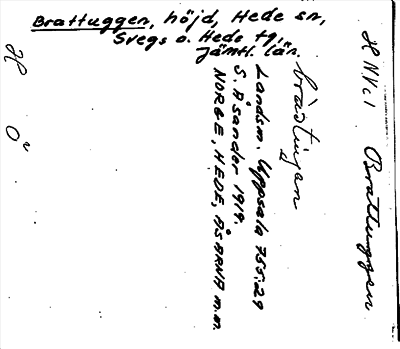 Brattuggen, höjd, Hede sn,
Svegs o. Hede tg,
Jämtl. län.
HNVc1 Brattuggen
Landsm. Uppsala 755:29
S. Åsander 1919.
NORGE, HEDE, ÅSARNA m.m.